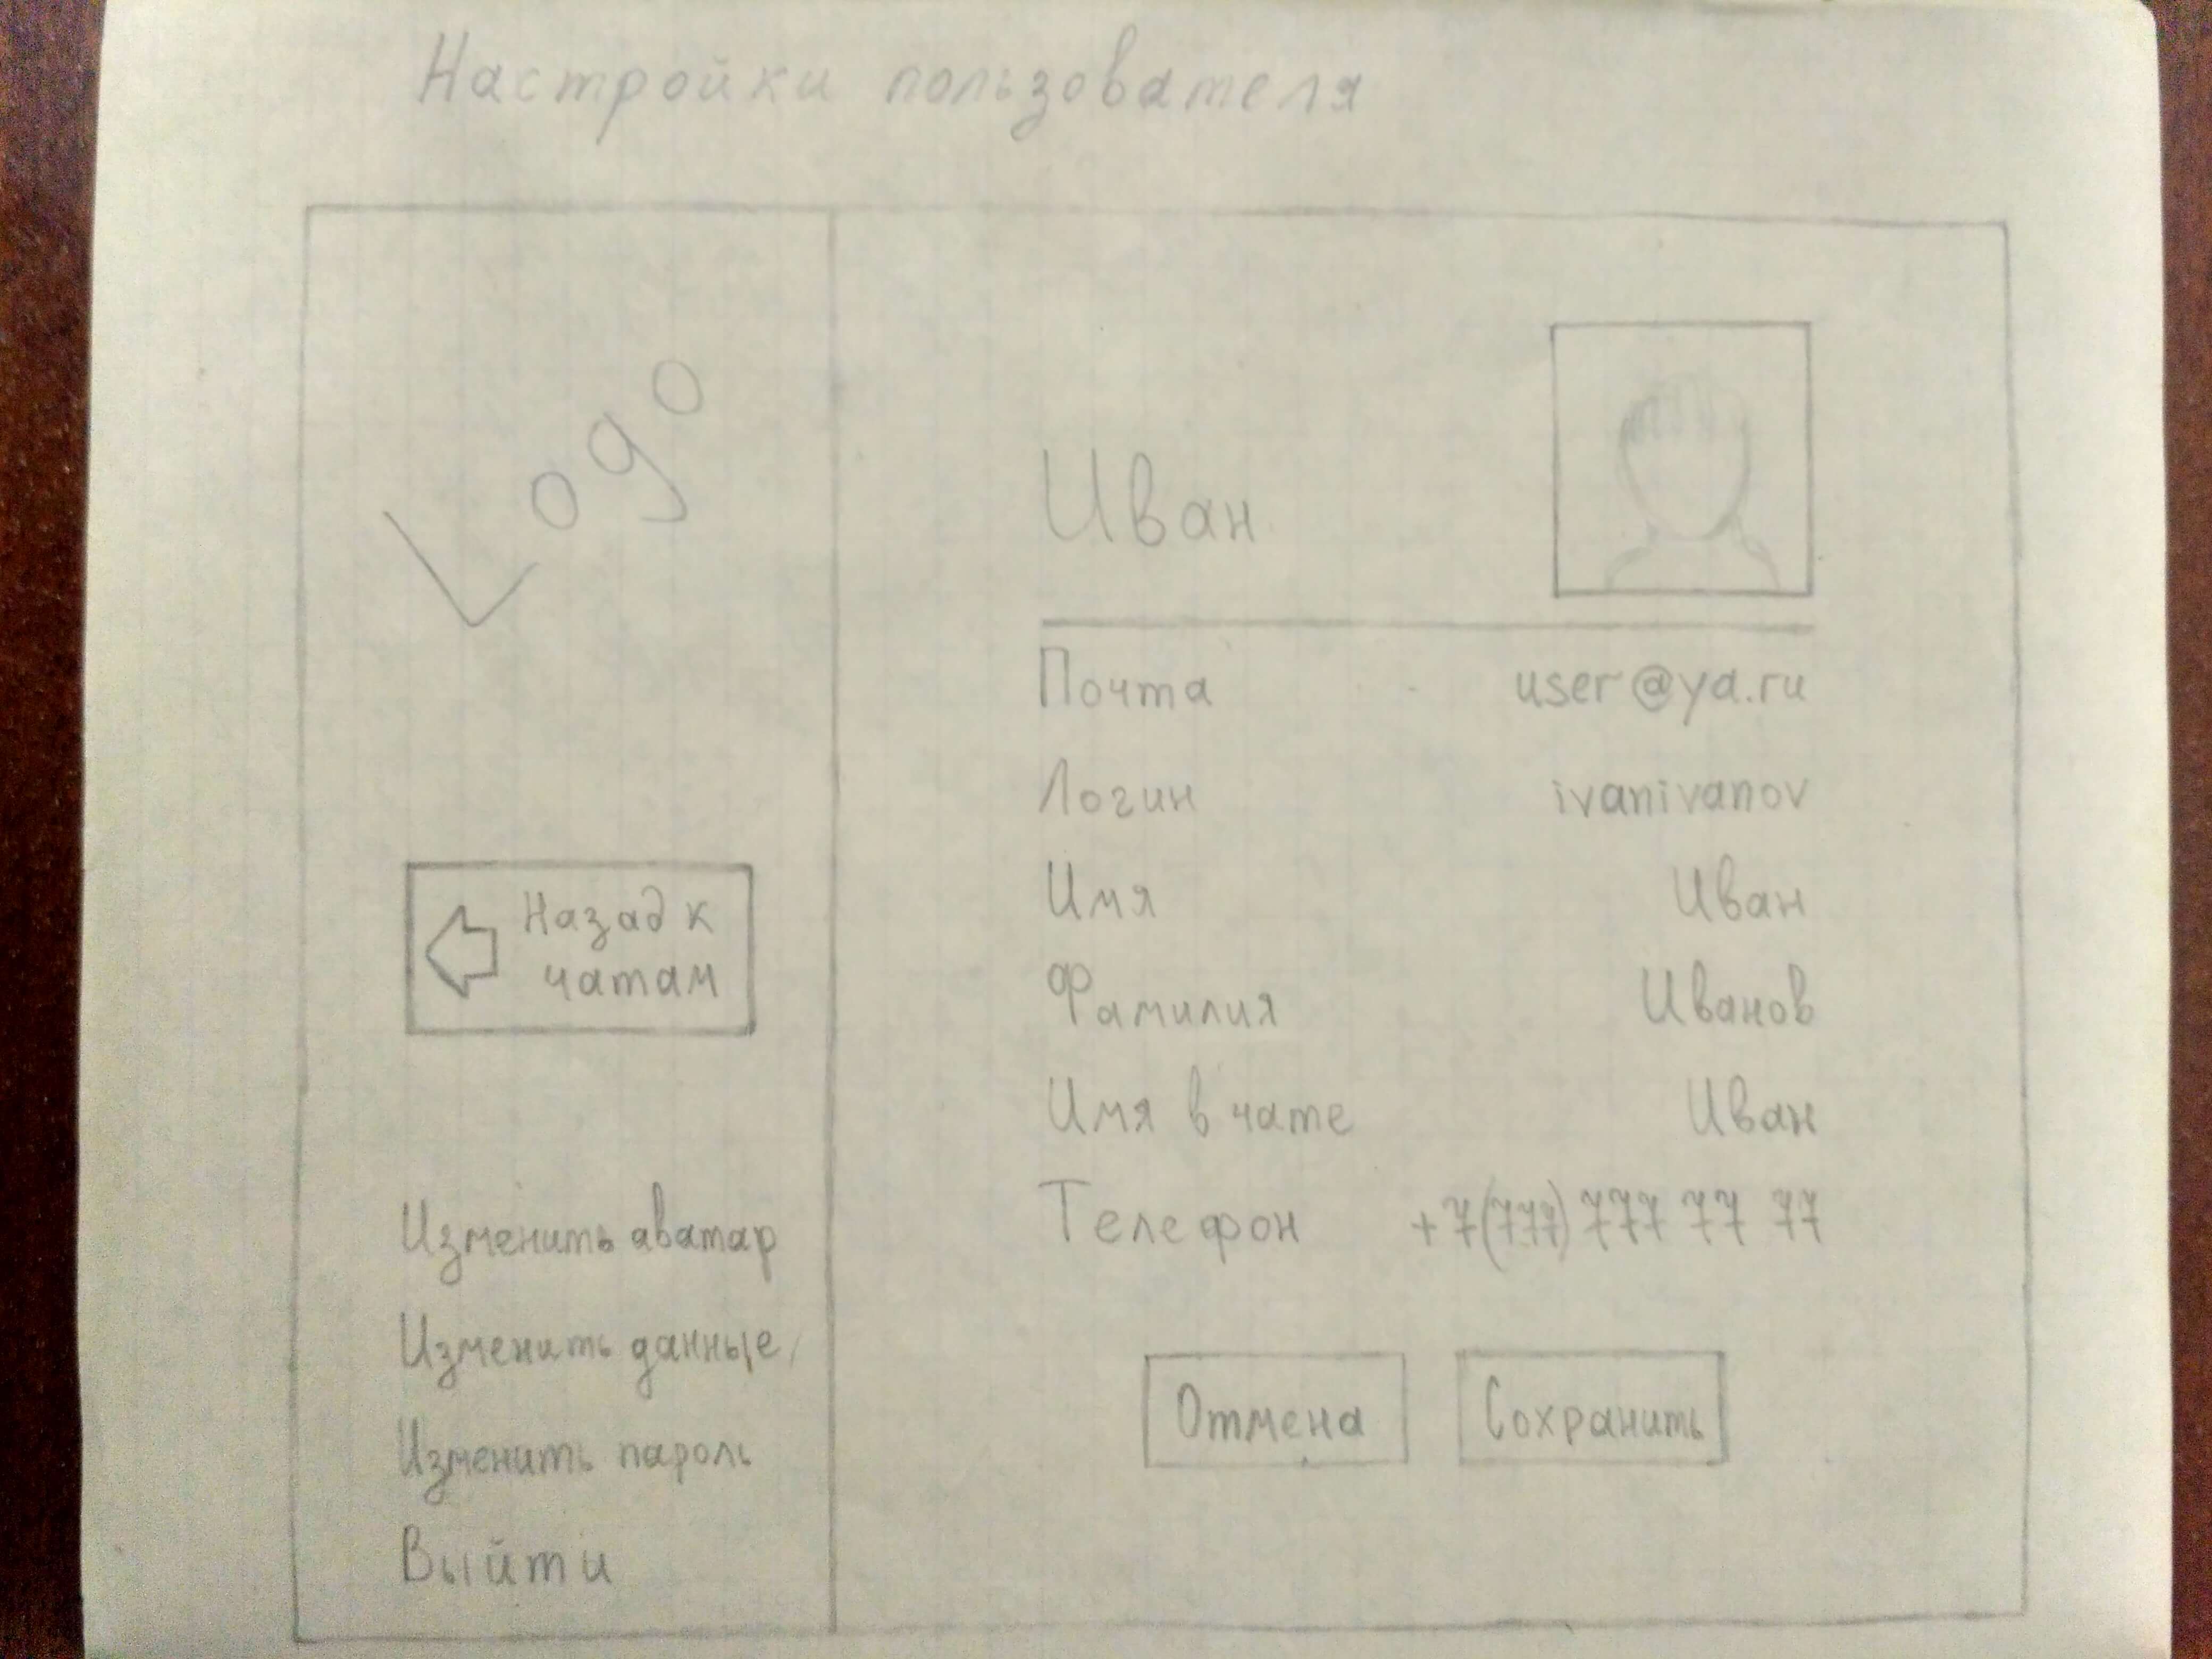 Настройки пользователя
Logo
Назад к
чатам
Изменить аватар
Изменить данные
Изменить пароль
Выйти
Иван
Почта user@ya.ru
Логин ivanivanov
Имя Иван
Фамилия Иванов
Имя в чате Иван
Телефон +7(777) 777 77 77
Отмена Сохранить